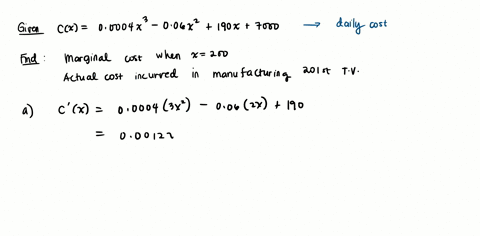 Given C(x) = 0.0004x³ - 0.06x² + 190x + 7000 → daily cost
Find : Marginal cost when x = 200
Actual cost incurred in manufacturing 201st T.V.
a) C'(x) = 0.0004 (3x²) - 0.06 (2x) + 190
= 0.00122